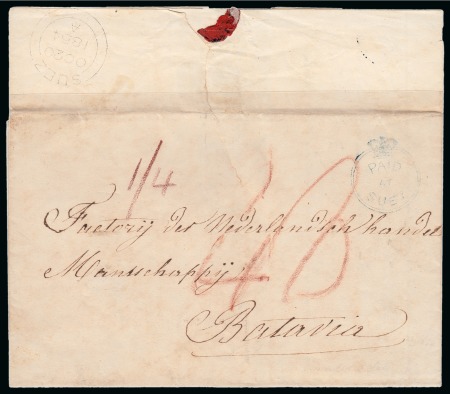 SUEZ
OC 20
A
PAID
AT
SUEZ
1/4
48
Factorij der Nederlandsch handel
Maatschappij
Batavia